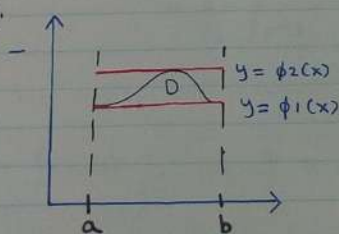 y = φ2(x)
D
y = φ1(x)
a b